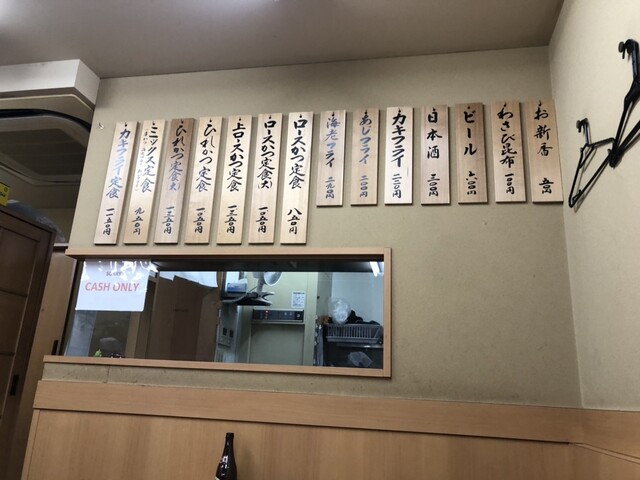 お新香 五〇円
わさび昆布 一〇〇円
ビール 六〇〇円
日本酒 三〇〇円
カキフライ 二二〇円
あじフライ 二〇〇円
海老フライ 二九〇円
ロースかつ定食 八五〇円
ロースかつ定食(大) 一〇五〇円
上ロースかつ定食 一三五〇円
ひれかつ定食 一〇五〇円
ひれかつ定食(大) 一三五〇円
ミックス定食 九五〇円
カキフライ定食 一一五〇円
CASH ONLY